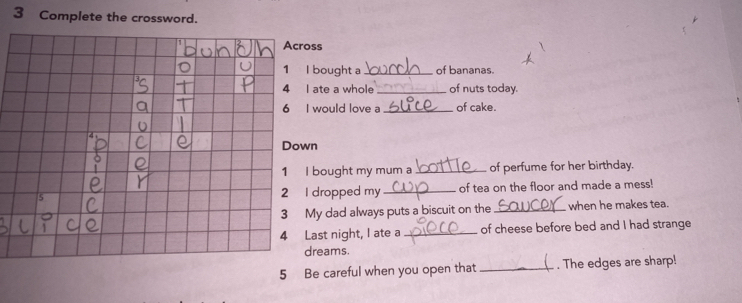 3 Complete the crossword.
bunch
Across
1 I bought a bunch of bananas.
4 I ate a whole of nuts today.
6 I would love a slice of cake.
Down
1 I bought my mum a bottle of perfume for her birthday.
2 I dropped my cup of tea on the floor and made a mess!
3 My dad always puts a biscuit on the saucer when he makes tea.
4 Last night, I ate a piece of cheese before bed and I had strange
dreams.
5 Be careful when you open that . The edges are sharp!
bottle
cup
saucer
piece
slice